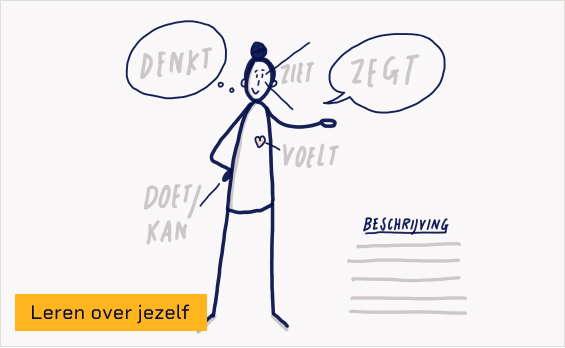 DENKT
ZIET
ZEGT
VOELT
DOET/
KAN
BESCHRIJVING
Leren over jezelf